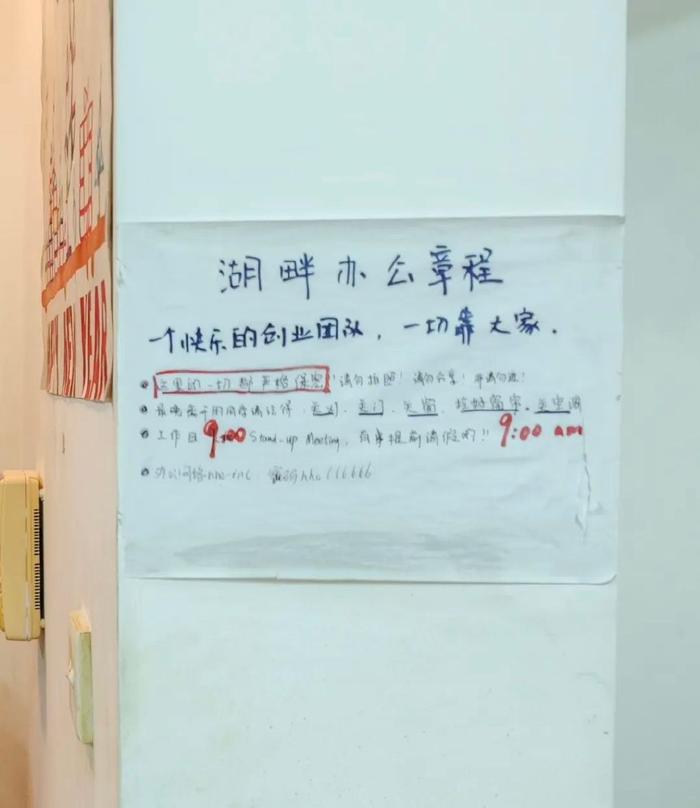 湖畔办公章程
一个快乐的创业团队，一切靠大家．
这里的一切都严格保密！请勿拍照！请勿分享！
最晚离开的同学请记得，关灯、关门、关窗、拉好窗帘、关空调
工作日 9:00 Stand-up Meeting，有事提前请假哟!! 9:00 am
办公网络
NEW YEAR